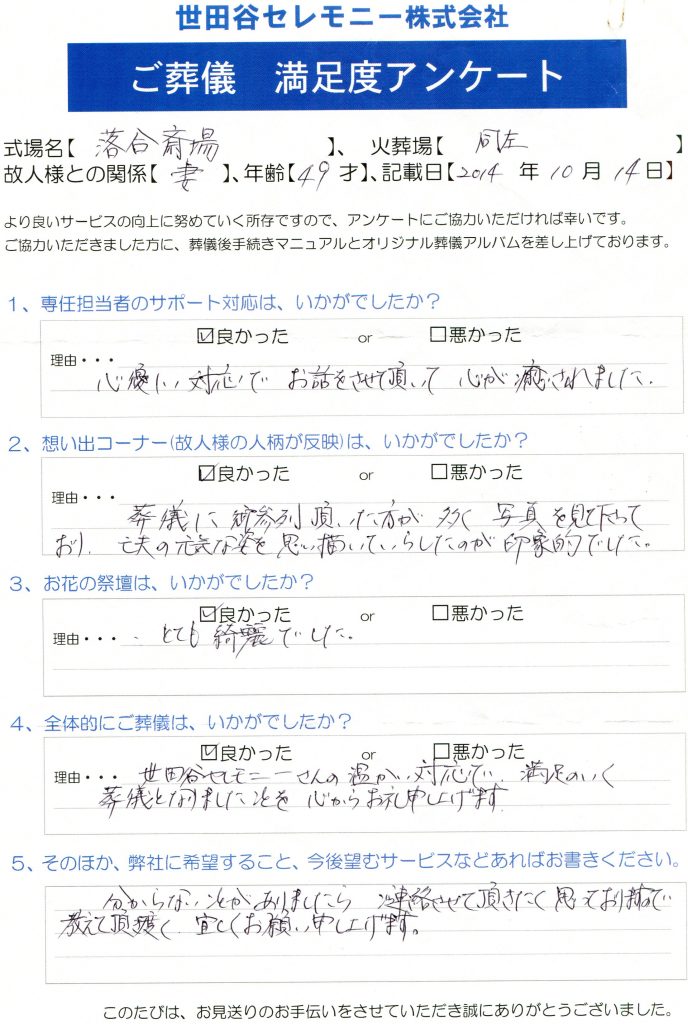 世田谷セレモニー株式会社
ご葬儀 満足度アンケート
式場名【 落合斎場 】、火葬場【 同左 】
故人様との関係【 妻 】、年齢【49才】、記載日【2014年10月14日】
より良いサービスの向上に努めていく所存ですので、アンケートにご協力いただければ幸いです。
ご協力いただきました方に、葬儀後手続きマニュアルとオリジナル葬儀アルバムを差し上げております。
1、専任担当者のサポート対応は、いかがでしたか?
☑良かった or □悪かった
理由・・・
心優しい対応で お話をさせて頂いて 心が癒されました.
2、想い出コーナー(故人様の人柄が反映)は、いかがでしたか?
☑良かった or □悪かった
理由・・・
葬儀に御参列頂いた方が 多く 写真を見て下さって
おり、亡夫の元気な姿を思い描いていらしたのが印象的でした。
3、お花の祭壇は、いかがでしたか?
☑良かった or □悪かった
理由・・・ とても綺麗でした。
4、全体的にご葬儀は、いかがでしたか?
☑良かった or □悪かった
理由・・・ 世田谷セレモニーさんの温かい対応で、満足のいく
葬儀となりましたことを 心からお礼申し上げます
5、そのほか、弊社に希望すること、今後望むサービスなどあればお書きください。
分からないことがありましたら 連絡させて頂きたく思っておりますので
教えて頂く 宜しくお願い申し上げます。
このたびは、お見送りのお手伝いをさせていただき誠にありがとうございました。